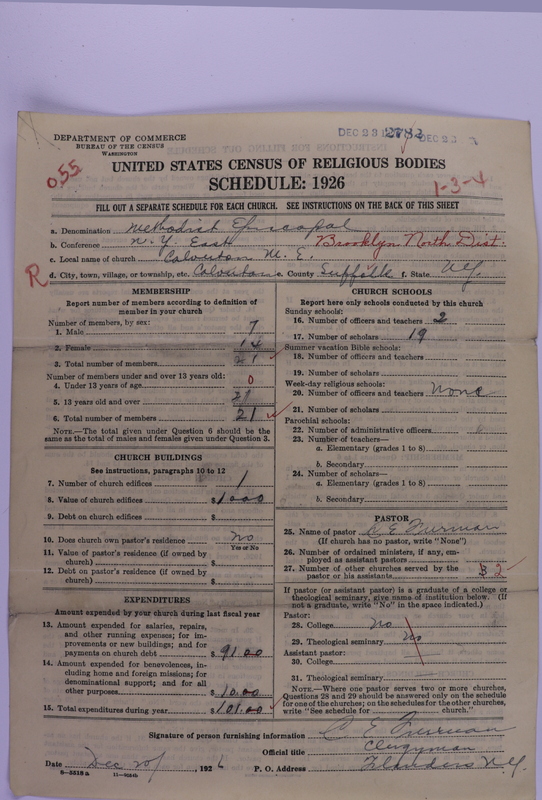 DEC 23 1 2782 DEC 23
DEPARTMENT OF COMMERCE
BUREAU OF THE CENSUS
WASHINGTON
UNITED STATES CENSUS OF RELIGIOUS BODIES
055
SCHEDULE: 1926
1-3-4
FILL OUT A SEPARATE SCHEDULE FOR EACH CHURCH. SEE INSTRUCTIONS ON THE BACK OF THIS SHEET
a. Denomination Methodist Episcopal
b. Conference N. Y. East Brooklyn North Dist.
c. Local name of church Calverton M. E.
R
d. City, town, village, or township, etc. Calverton e. County Suffolk f. State N.Y.
MEMBERSHIP
Report number of members according to definition of
member in your church
Number of members, by sex:
1. Male 7
2. Female 14
3. Total number of members 21
Number of members under and over 13 years old:
4. Under 13 years of age 0
5. 13 years old and over 21
6. Total number of members 21
NOTE.—The total given under Question 6 should be the
same as the total of males and females given under Question 3.
CHURCH BUILDINGS
See instructions, paragraphs 10 to 12
7. Number of church edifices 1
8. Value of church edifices $1000
9. Debt on church edifices $
10. Does church own pastor's residence? No
Yes or No
11. Value of pastor's residence (if owned by
church) $
12. Debt on pastor's residence (if owned by
church) $
EXPENDITURES
Amount expended by your church during last fiscal year
13. Amount expended for salaries, repairs,
and other running expenses; for im-
provements or new buildings; and for
payments on church debt $91.00
14. Amount expended for benevolences, in-
cluding home and foreign missions; for
denominational support; and for all
other purposes $10.00
15. Total expenditures during year $101.00
CHURCH SCHOOLS
Report here only schools conducted by this church
Sunday schools:
16. Number of officers and teachers 2
17. Number of scholars 19
Summer vacation Bible schools:
18. Number of officers and teachers
19. Number of scholars
Week-day religious schools:
20. Number of officers and teachers None
21. Number of scholars
Parochial schools:
22. Number of administrative officers
23. Number of teachers—
a. Elementary (grades 1 to 8)
b. Secondary
24. Number of scholars—
a. Elementary (grades 1 to 8)
b. Secondary
PASTOR
25. Name of pastor C E
(If church has no pastor, write "None")
26. Number of ordained ministers, if any, em-
ployed as assistant pastors
27. Number of other churches served by the
pastor or his assistants 3 2
If pastor (or assistant pastor) is a graduate of a college or
theological seminary, give name of institution below. (If
not a graduate, write "No" in the space indicated.)
Pastor:
28. College No
29. Theological seminary No
Assistant pastor:
30. College
31. Theological seminary
NOTE.—Where one pastor serves two or more churches,
Questions 28 and 29 should be answered only on the schedule
for one of the churches; on the schedules for the other churches,
write "See schedule for church."
Signature of person furnishing information C E
Official title Clergyman
Date Dec 20, 1926 P. O. Address Flanders N.Y.
8—5518a 11—9184b